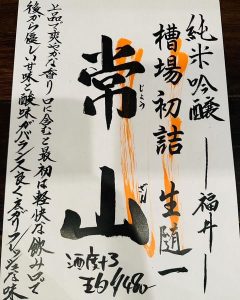 純米吟醸 ―福井―
槽場初詰 生随一
常山
じょう
ざん
酒度+3
上品で爽やかな香り 口に含むと最初は軽快な飲み口で
後から優しい甘味と酸味がバランス良く広がり